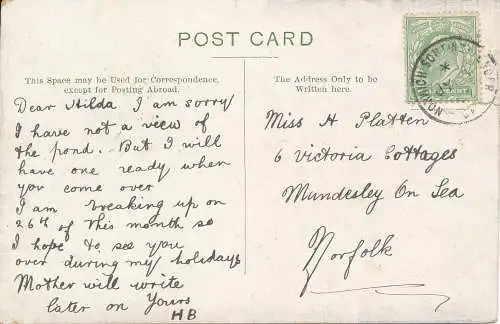 POST CARD
This Space may be Used for Correspondence,
except for Posting Abroad.
The Address Only to be
Written here.
Dear Hilda I am sorry
I have not a view of
the pond. But I will
have one ready when
you come over
I am breaking up on
26th of this month so
I hope to see you
over during my holidays
Mother will write
later on Yours
HB
Miss H Platten
6 Victoria Cottages
Mundesley On Sea
Norfolk